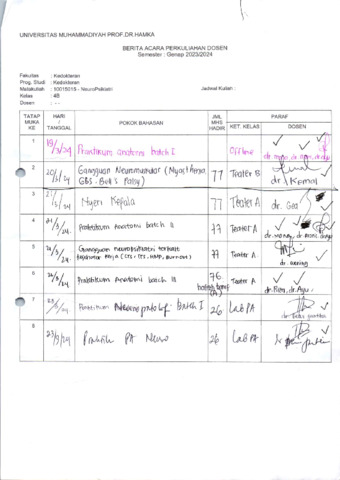 UNIVERSITAS MUHAMMADIYAH PROF.DR.HAMKA
BERITA ACARA PERKULIAHAN DOSEN
Semester : Genap 2023/2024
Fakultas : Kedokteran
Prog. Studi : Kedokteran
Matakuliah : 10015015 - NeuroPsikiatri
Jadwal Kuliah :
Kelas : 4B
Dosen : - -
TATAP MUKA KE HARI / TANGGAL POKOK BAHASAN JML MHS HADIR KET. KELAS PARAF DOSEN
1 19/3/24 Praktikum anatomi batch I Offline
2 20/3/24 Gangguan Neuromuskular (Myasthenia, GBS, Bell's Palsy) 77 Teater B dr. Kemal
3 21/3/24 Nyeri Kepala 77 Teater A dr. Gea
4 21/3/24 Praktikum Anatomi batch II 77 Teater A
5 Gangguan neuropsikiatri terkait kerja 77 Teater A
6 Praktikum Anatomi batch III 76 Teater A
7 23/3/24 Praktikum batch I 26 Lab PA
8 23/3/24 Praktik PA Neuro 26 Lab PA